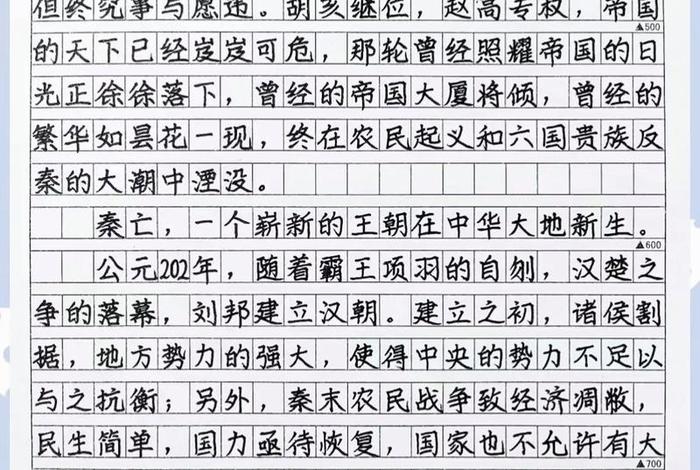 但终究事与愿违。胡亥继位，赵高专权，帝国
▲500
的天下已经岌岌可危，那轮曾经照耀帝国的日
光正徐徐落下，曾经的帝国大厦将倾，曾经的
繁华如昙花一现，终在农民起义和六国贵族反
秦的大潮中湮没。
秦亡，一个崭新的王朝在中华大地新生。
▲600
公元202年，随着霸王项羽的自刎，汉楚之
争的落幕，刘邦建立汉朝。建立之初，诸侯割
据，地方势力的强大，使得中央的势力不足以
与之抗衡；另外，秦末农民战争致经济凋敝，
民生简单，国力亟待恢复，国家也不允许有大
▲700